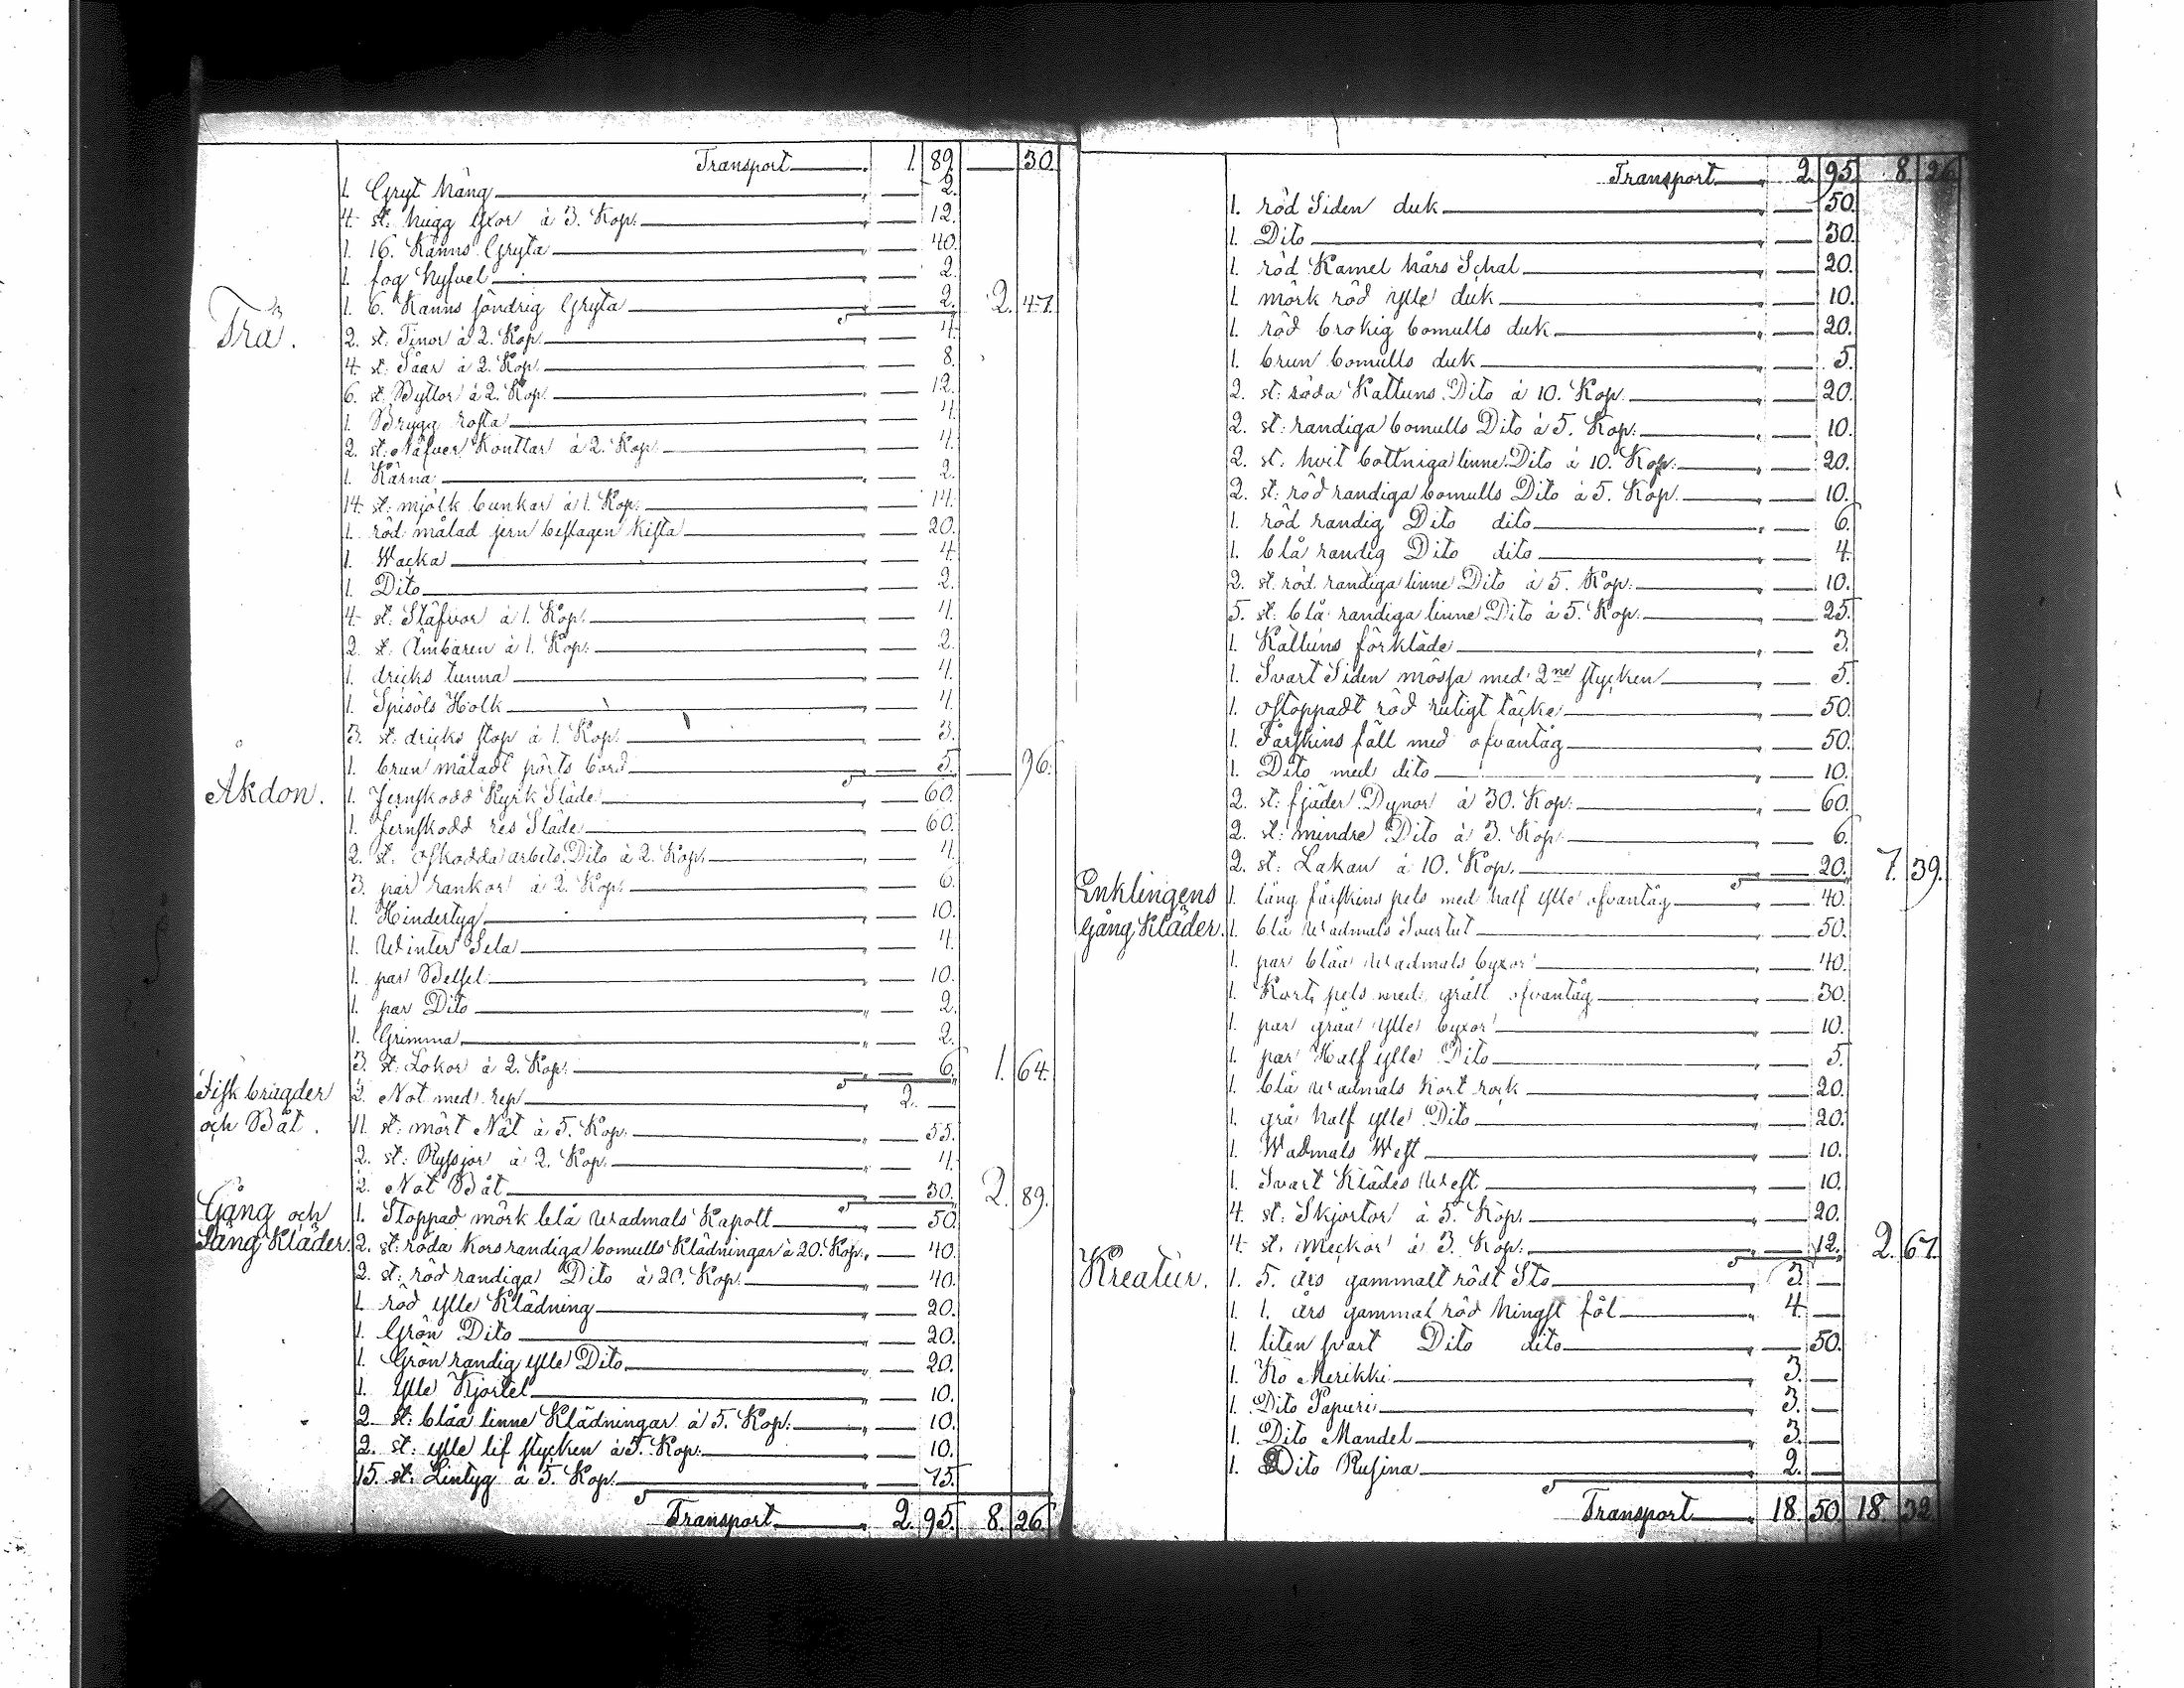 Transport 1. 89. — 30.
1. Gryt häng — 2.
4. st: hugg Yxor à 3. Kop: — 12.
1. 16. Kanns Gryta — 40.
1. fog hyfvel — 2.
1. 6. Kanns söndrig Gryta — 2. 2. 47.
Trä.
2. st: Tinor à 2. Kop. — 4.
4. st: Såar à 2. Kop. — 8.
6. st: Byttor à 2. Kop. — 12.
1. Brygg rosta — 4.
2. st: Näfver Konttar à 2. Kop. — 4.
1. Kärna — 2.
14. st: mjölk bunkar à 1. Kop: — 14.
1. röd målad jern beslagen kista — 20.
1. Wacka — 4.
1. Dito — 2.
4. st: Stäfvor à 1. Kop. — 4.
2. st. Ämbaren à 1. Kop: — 2.
1. dricks tunna — 4.
1. Spisöls Holk — 4.
3. st: dricks stop à 1. Kop: — 3.
1. brun måladt pörts bord — 5. — 96.
Åkdon.
1. Jernskodd Kyrk Släde — 60.
1. Jernskodd res Släde — 60.
2. st. oskodda arbets Dito à 2. Kop. — 4.
3. par rankor à 2. Kop. — 6.
1. Hindertyg — 10.
1. Winter Sela — 4.
1. par Betsel — 10.
1. par Dito — 2.
1. Grimma — 2.
3. st: Lokor à 2. Kop. — 6. 1. 64.
Fisk bragder
och Båt.
2. Not med rep 2. —
11. st: mört Nät à 5. Kop: — 55.
2. st: Ryssjor à 2. Kop. — 4.
2. Not Båt — 30. 2. 89.
Gång och
Säng Kläder.
1. Stoppad mörk blå Wadmals Kapott — 50.
2. st: röda korsrandiga bomulls Klädningar à 20. Kop. — 40.
2. st: röd randiga Dito à 20. Kop. — 40.
1. röd ylle Klädning — 20.
1. Grön Dito — 20.
1. Grön randig ylle Dito — 20.
1. ylle Kjortel — 10.
2. st: blåa linne Klädningar à 5. Kop: — 10.
2. st: ylle lif stycken à 5. Kop: — 10.
15. st: Lintyg à 5. Kop. — 75.
Transport 2. 95. 8. 26.
Transport 2. 95. 8. 26.
1. röd Siden duk — 50.
1. Dito — 30.
1. röd Kamel hårs Schal — 20.
1. mörk röd ylle duk — 10.
1. röd brokig bomulls duk — 20.
1. brun bomulls duk — 5.
2. st: röda Kattuns Dito à 10. Kop. — 20.
2. st: randiga bomulls Dito à 5. Kop: — 10.
2. st. hvit bottniga linne Dito à 10. Kop: — 20.
2. st: röd randiga bomulls Dito à 5. Kop. — 10.
1. röd randig Dito dito — 6.
1. blå randig Dito dito — 4.
2. st: röd randiga linne Dito à 5. Kop: — 10.
5. st: blå randiga linne Dito à 5. Kop: — 25.
1. Kattuns förkläde — 3.
1. Svart Siden mössa med 2ne stycken — 5.
1. ostoppadt röd rutigt täcke — 50.
1. Fårskins fäll med ofvantåg — 50.
1. Dito med dito — 10.
2. st: fjäder Dynor à 30. Kop: — 60.
2. st: mindre Dito à 3. Kop. — 6.
2. st: Lakan à 10. Kop. — 20. 7. 39.
Enklingens
Gång Kläder.
1. lång fårskins pels med half ylle ofvantåg — 40.
1. blå Wadmals Sourtut — 50.
1. par blåa Wadmals byxor — 40.
1. Kort pels med grått ofvantåg — 30.
1. par gråa ylle byxor — 10.
1. par Half ylle Dito — 5.
1. blå Wadmals Kort rock — 20.
1. grå half ylle Dito — 20.
1. Wadmals West — 10.
1. Svart Klädes West — 10.
4. st: Skjortor à 5. Kop. — 20.
4. st. Meckor à 3. Kop: — 12. 2. 67.
Kreatur.
1. 5. års gammalt rödt Sto 3. —
1. 1. års gammal röd hingst föl 4. —
1. liten svart Dito dito — 50.
1. Ko Merikki 3. —
1. Dito Papuri 3. —
1. Dito Mandel 3. —
1. Dito Rusina 2. —
Transport 18. 50. 18. 32.